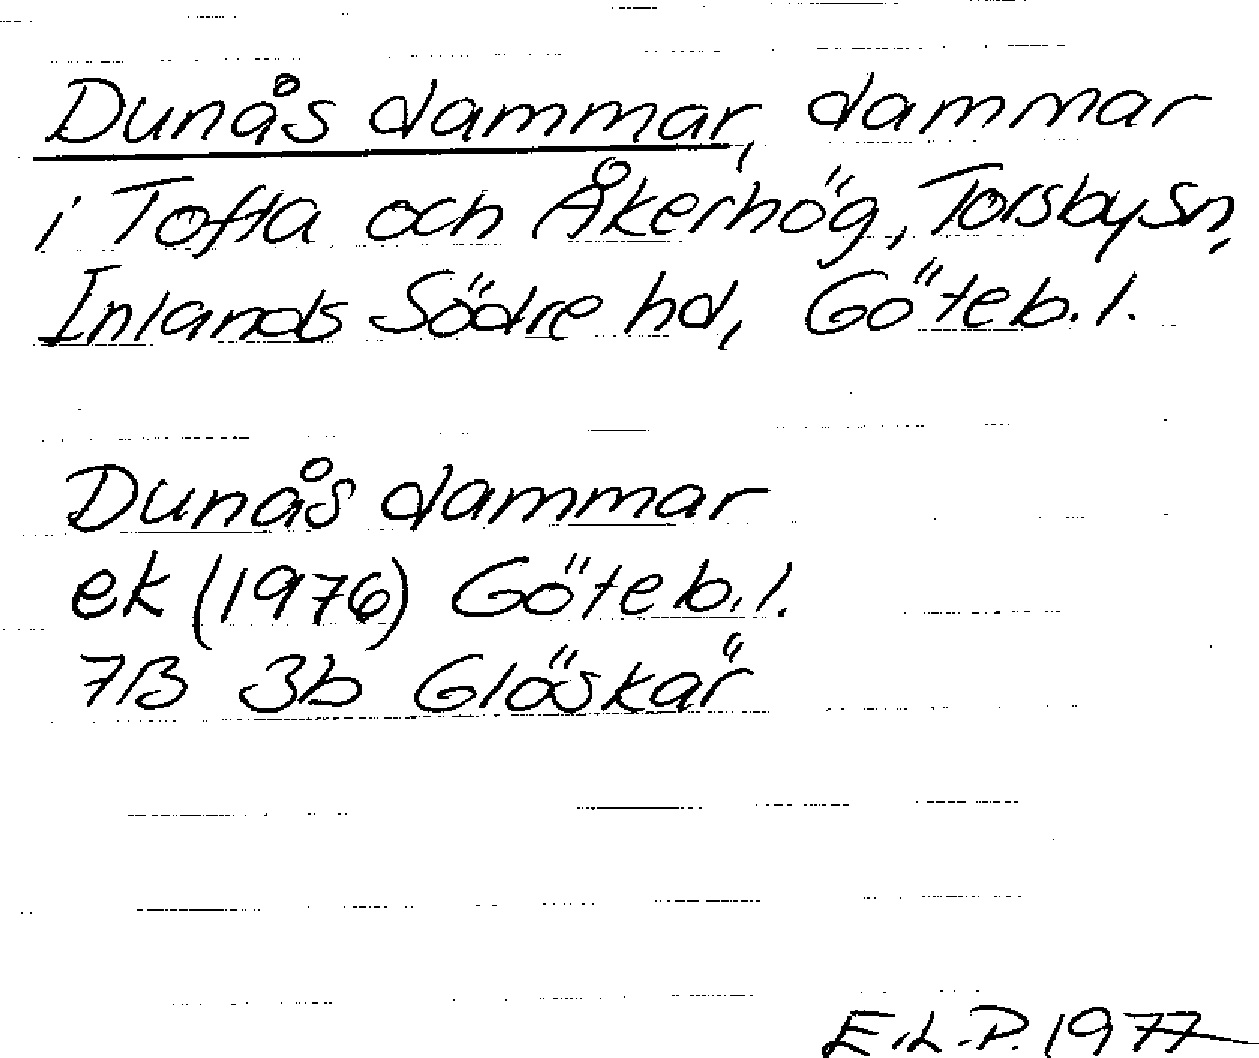 Dunås dammar, dammar
i Tofta och Åkerhög, Torsby sn,
Inlands Södre hd, Göteb. l.
Dunås dammar
ek (1976) Göteb. l.
7B 3b Glöskär
E.L.P. 1977